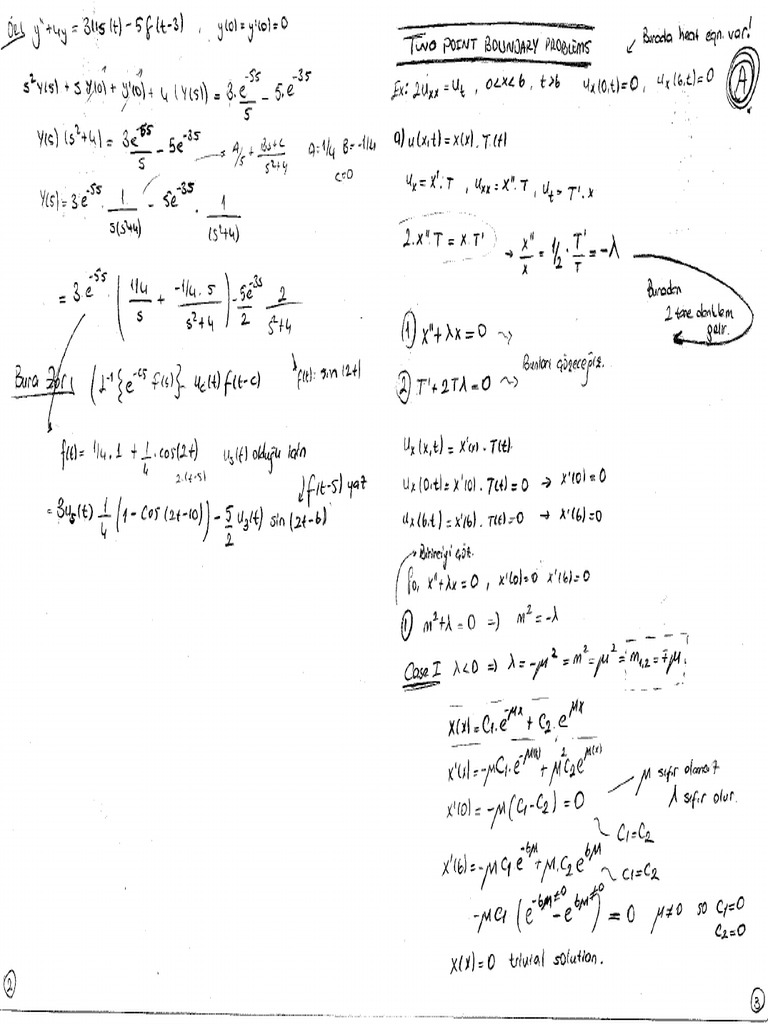 Ör: y''+4y = 3u5(t) - 5δ(t-3) , y(0) = y'(0) = 0
s²Y(s) + sY(0) + y'(0) + 4(Y(s)) = 3.e^-5s/s - 5.e^-3s
Y(s)(s²+4) = 3e^-5s/s - 5e^-3s → A/s + Bs+C/s²+4 A=1/4 B=-1/4
C=0
Y(s) = 3.e^-5s . 1/s(s²+4) - 5e^-3s . 1/(s²+4)
= 3.e^-5s . (1/4/s + -1/4.s/s²+4) - 5e^-3s/2 2/s²+4
Bura Zor! (L^-1{e^-cs f(s)} - uc(t) f(t-c) f(t): sin(2t)
f(t) = 1/4.1 + 1/4.cos(2t) u5(t) olduğu için
2.(t-5)
f(t-5) yaz
= 3u5(t) 1/4 (1 - cos(2t-10)) - 5/2 u3(t) sin(2t-6)
2
TWO POINT BOUNDARY PROBLEMS
Burada heat eqn. var!
A
Ex: 2uxx = ut , 0<x<6 , t>6 ux(0,t)=0 , ux(6,t)=0
a) u(x,t) = x(x) . T(t)
ux = x'.T , uxx = x''.T , ut = T'.x
2.x''.T = x.T' → x''/x = 1/2 . T'/T = -λ
Buradan
2 tane denklem
gelir.
1 x''+λx = 0
Bunları çözeceğiz.
2 T'+2Tλ = 0
ux(x,t) = x'(x) . T(t)
ux(0,t) = x'(0) . T(t) = 0 → x'(0) = 0
ux(6,t) = x'(6) . T(t) = 0 → x'(6) = 0
Birinciyi çöz.
So, x''+λx = 0 , x'(0) = 0 x'(6) = 0
1 m²+λ = 0 => m² = -λ
Case I λ<0 => λ = -μ² = m² = μ² = m1,2 = ∓μ
x(x) = C1.e^-μx + C2.e^μx
x'(x) = -μC1.e^-μ(x) + μ²C2e^μ(x)
μ sıfır olamaz
λ sıfır olur.
x'(0) = -μ(C1-C2) = 0
C1=C2
x'(6) = -μC1e^-6μ + μ.C2e^6μ
C1=C2
-μC1 (e^-6μ≠0 - e^6μ≠0) = 0 μ≠0 so C1=0
C2=0
x(x) = 0 trivial solution.
3